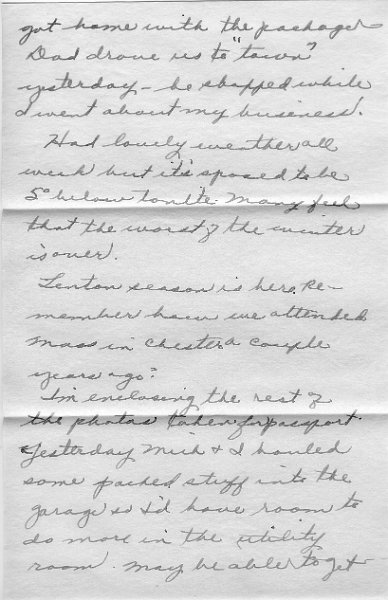 got home with the packages
Dad drove us to "town"
yesterday - he shopped while
I went about my business.
Had lovely weather all
week but it's sposed to be
5° below tonite. Many feel
that the worst of the winter
is over.
Lenton season is here. Re-
member how we attended
mass in Chester a couple
years ago?
I'm enclosing the rest of
the photos taken for passport.
Yesterday Mick & I hauled
some packed stuff into the
garage so I'd have room to
do more in the utility
room. May be able to get